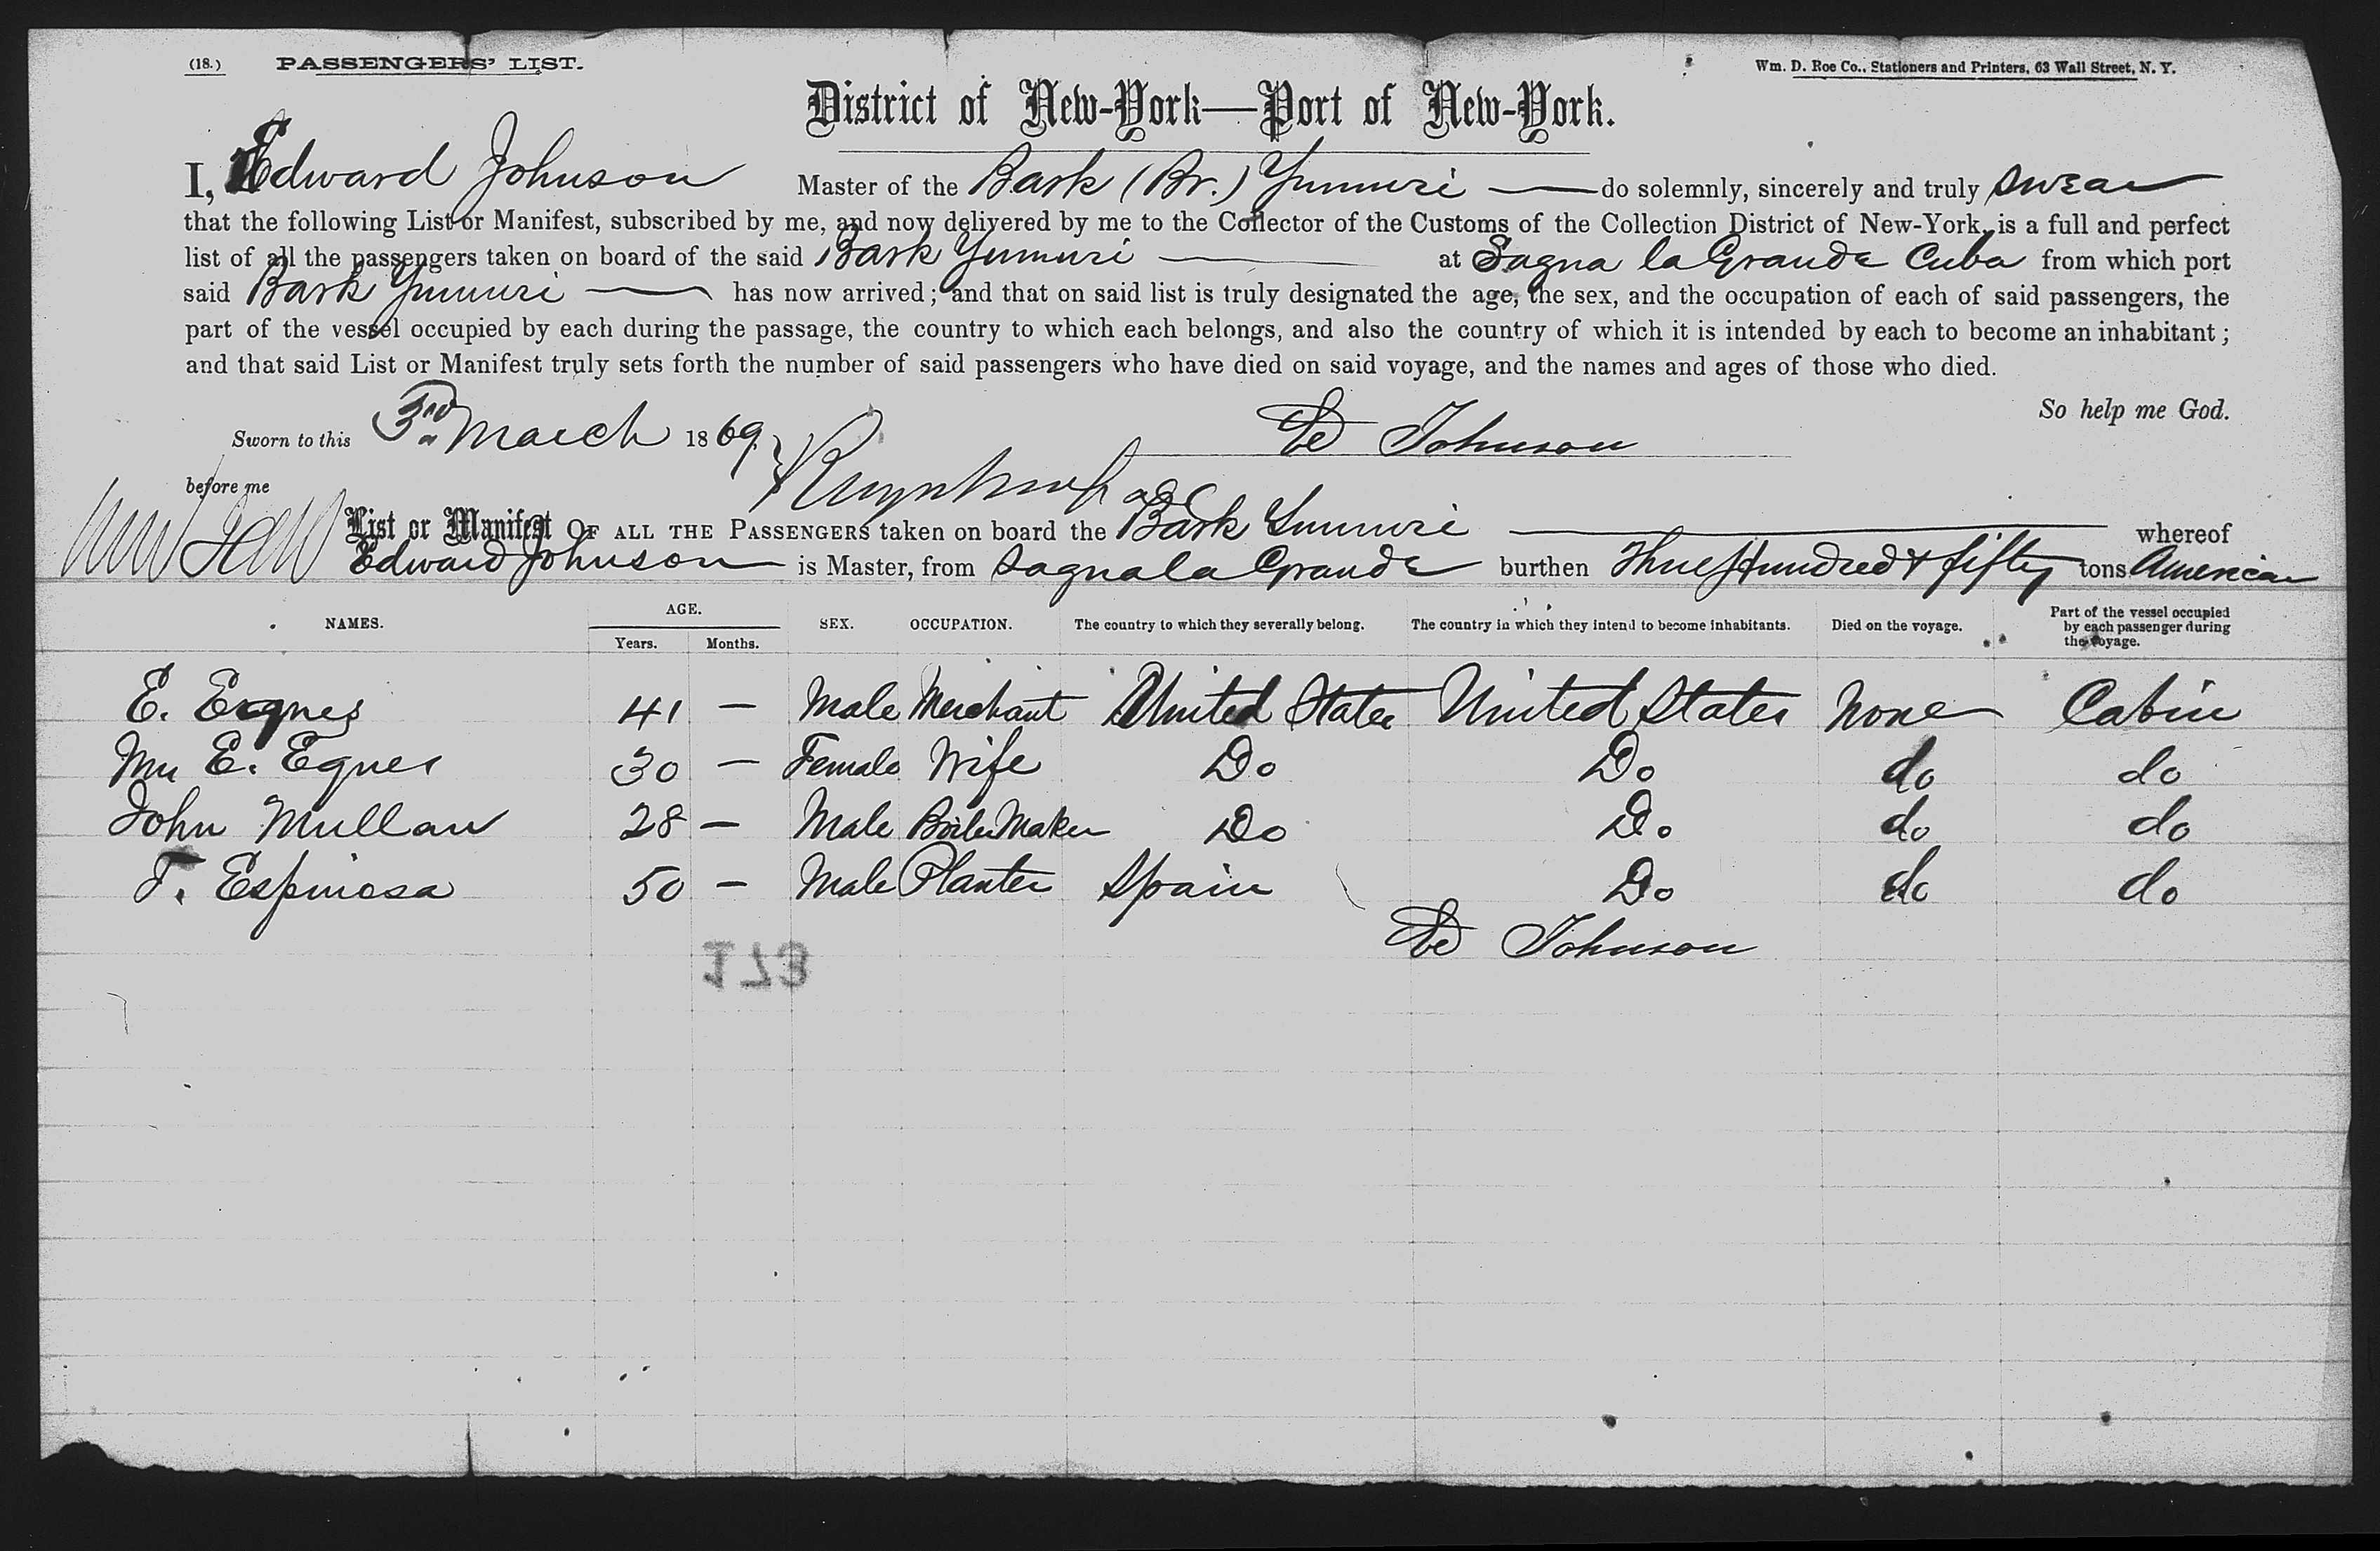 (18.) PASSENGERS' LIST.
Wm. D. Roe Co., Stationers and Printers, 63 Wall Street, N. Y.
District of New-York—Port of New-York.
I, Edward Johnson Master of the Bark (Br.) Yumuri do solemnly, sincerely and truly swear
that the following List or Manifest, subscribed by me, and now delivered by me to the Collector of the Customs of the Collection District of New-York, is a full and perfect
list of all the passengers taken on board of the said Bark Yumuri at Sagua la Grande Cuba from which port
said Bark Yumuri has now arrived; and that on said list is truly designated the age, the sex, and the occupation of each of said passengers, the
part of the vessel occupied by each during the passage, the country to which each belongs, and also the country of which it is intended by each to become an inhabitant;
and that said List or Manifest truly sets forth the number of said passengers who have died on said voyage, and the names and ages of those who died.
So help me God.
Sworn to this 3rd March 1869 Ed Johnson
before me
List or Manifest OF ALL THE PASSENGERS taken on board the Bark Yumuri whereof
Edward Johnson is Master, from Sagua la Grande burthen Three Hundred & fifty tons American
NAMES. AGE. Years. Months. SEX. OCCUPATION. The country to which they severally belong. The country in which they intend to become inhabitants. Died on the voyage. Part of the vessel occupied by each passenger during the voyage.
E. Eques 41 — Male Merchant United States United States None Cabin
Mrs E. Eques 30 — Female Wife Do Do do do
John Mullan 28 — Male Boiler Maker Do Do do do
F. Espinosa 50 — Male Planter Spain Do do do
Ed Johnson
173